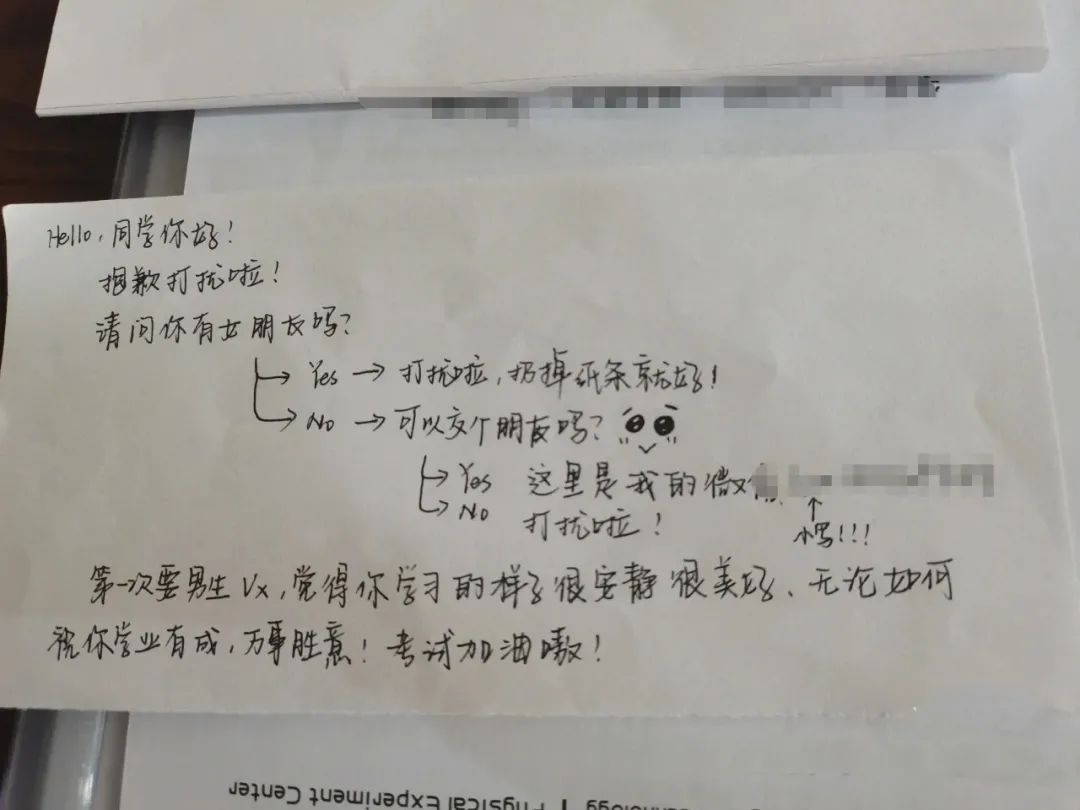 Hello,同学你好!
抱歉打扰啦!
请问你有女朋友吗?
Yes → 打扰啦,扔掉纸条就好!
No → 可以交个朋友吗?
Yes 这里是我的微信
No 打扰啦!
↑
小写!!!
第一次要男生Vx,觉得你学习的样子很安静很美好、无论如何
祝你学业有成,万事胜意!考试加油嗷!
Technology | Physical Experiment Center